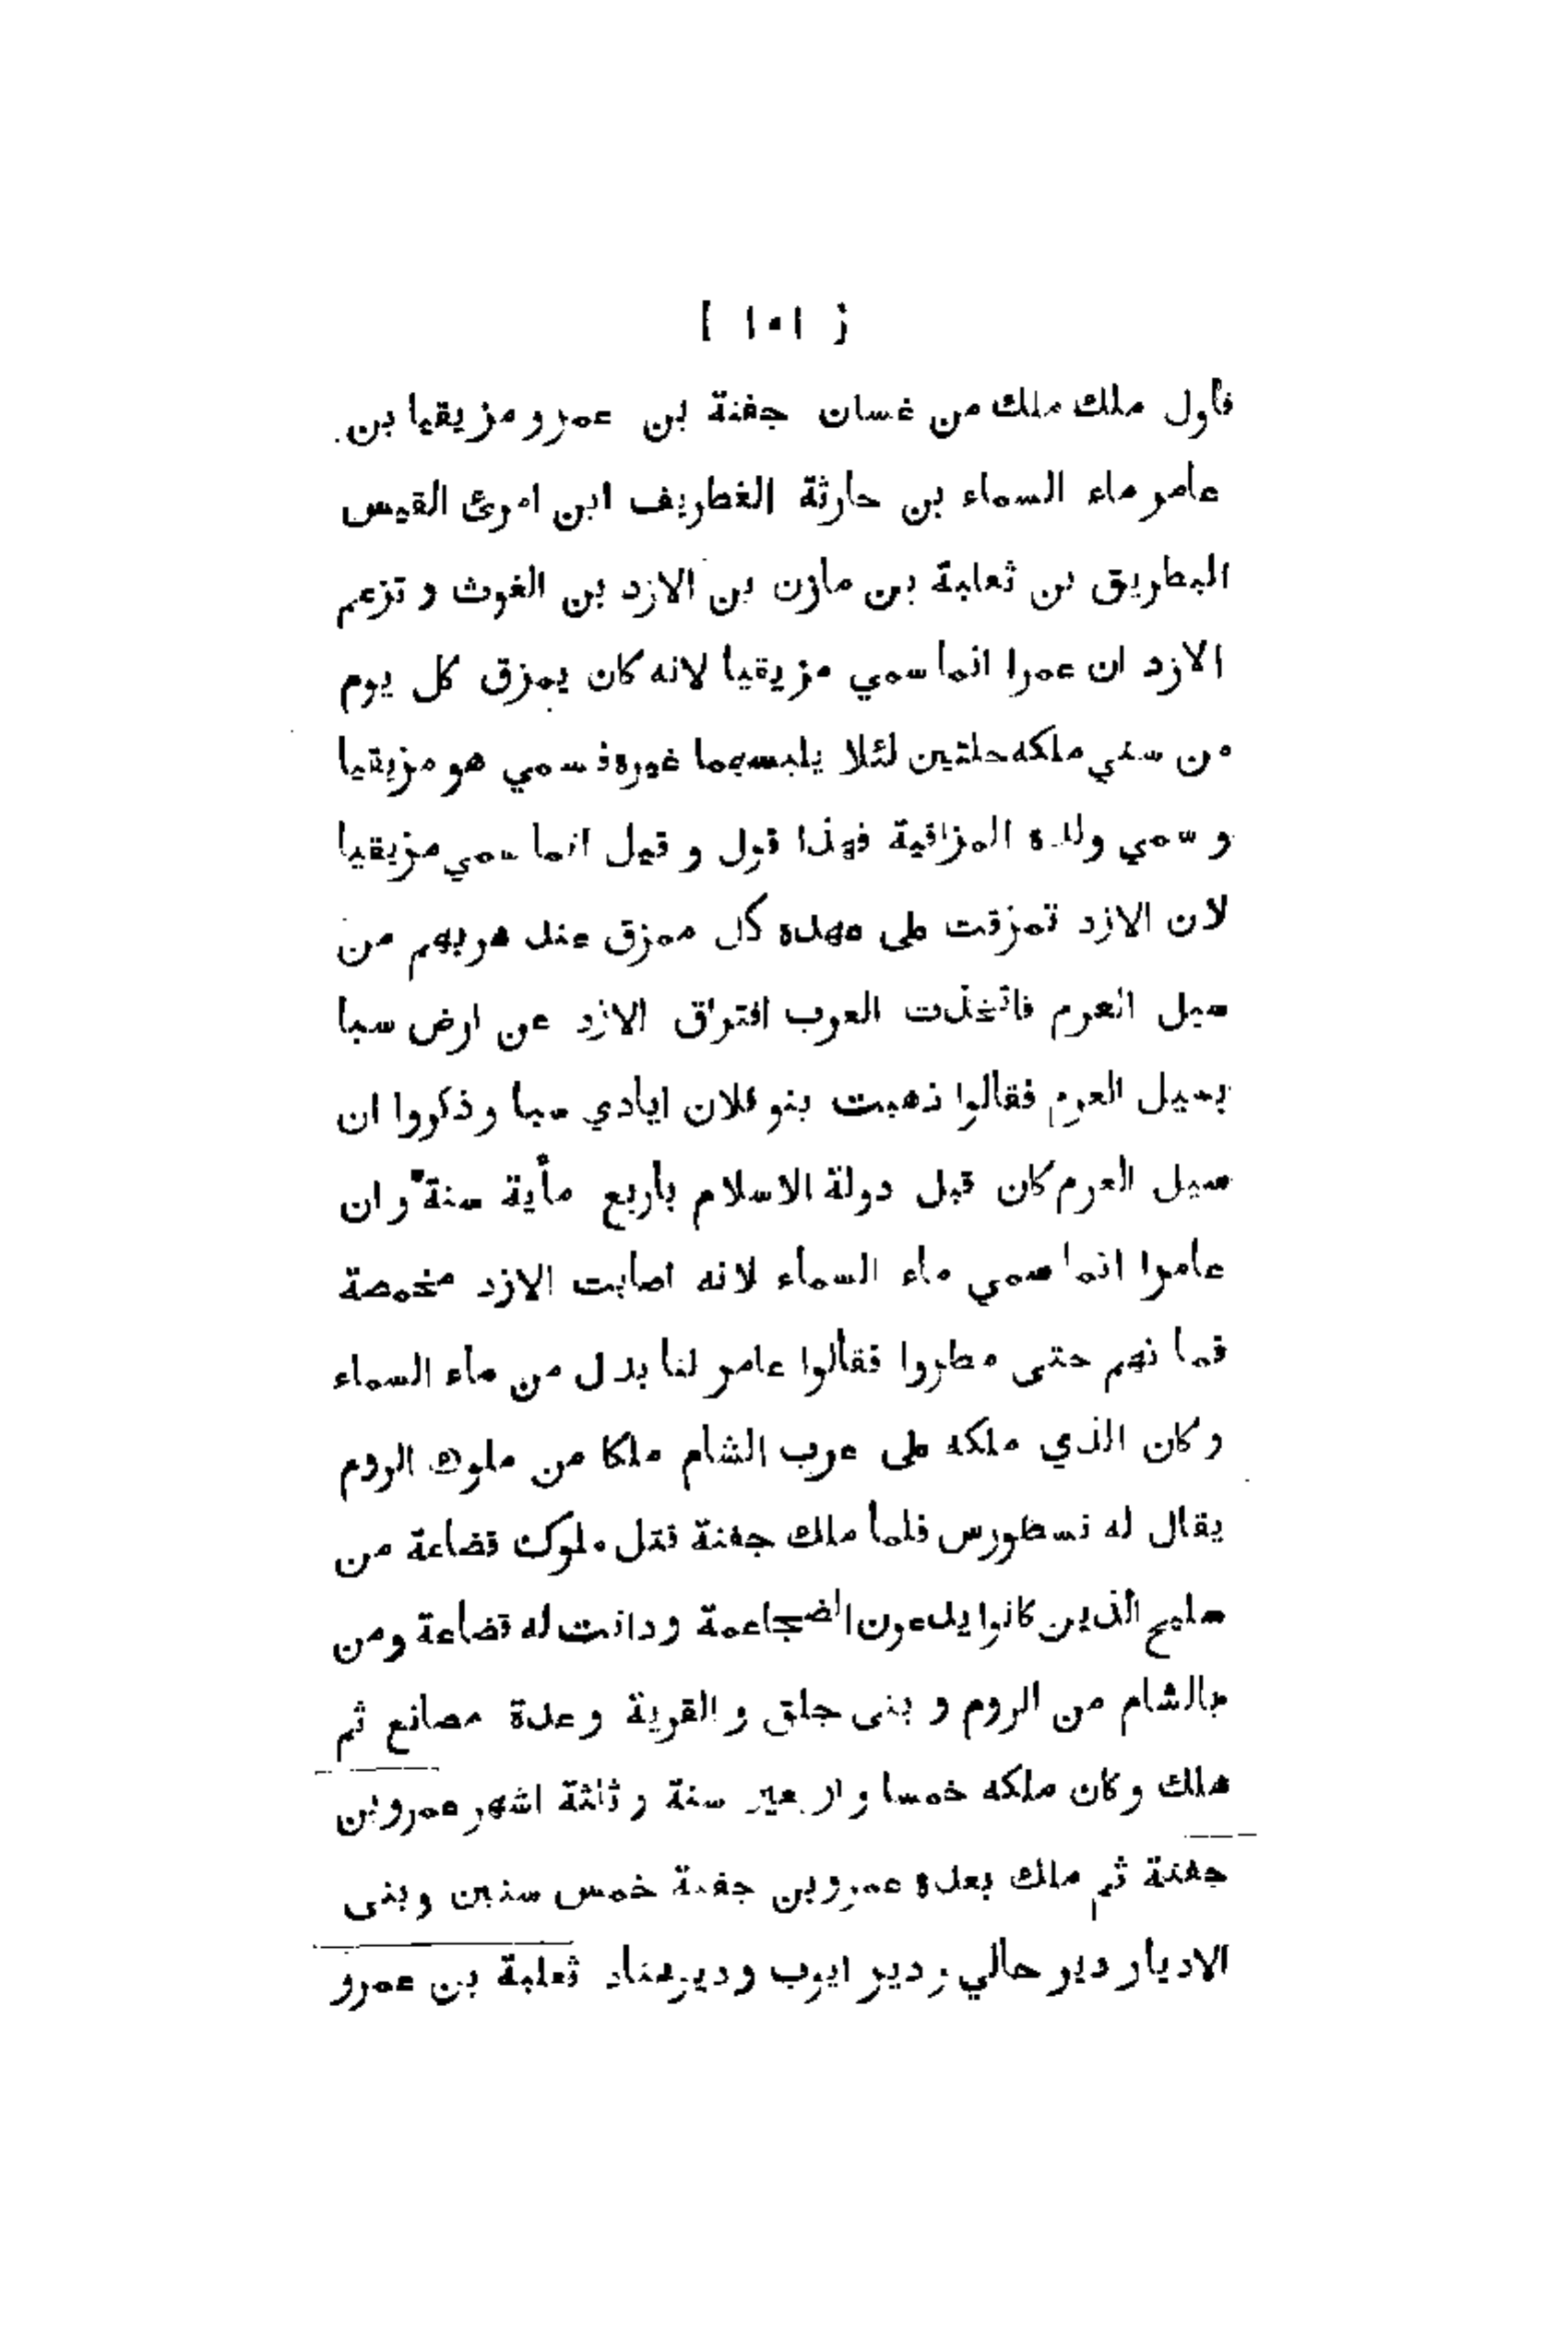 [ ١٠١ ]
فأول ملك ملك من غسان جفنة بن عمرو مزيقيا بن
عامر ماء السماء بن حارثة الغطريف ابن امرئ القيس
البطريق بن ثعلبة بن مازن بن الازد بن الغوث و تزعم
الازد ان عمرا انما سمي مزيقيا لانه كان يمزق كل يوم
من سني ملكه حلتين لئلا يلبسهما غيره فسمي هو مزيقيا
و سمي ولده المزاقية فهذا قول و قيل انما سمي مزيقيا
لان الازد تمزقت على عهده كل ممزق عند هربهم من
سيل العرم فاتخذت العرب افتراق الازد عن ارض سبا
بسيل العرم فقالوا ذهبت بنو فلان ايادي سبا و ذكروا ان
سيل العرم كان قبل دولة الاسلام باربع مأية سنة و ان
عامرا انما سمي ماء السماء لانه اصابت الازد مخمصة
فما نهم حتى مطروا فقالوا عامر لنا بدل من ماء السماء
و كان الذي ملكه على عرب الشام ملكا من ملوك الروم
يقال له نسطورس فلما ملك جفنة قتل ملوك قضاعة من
سليح الذين كانوا يدعون الضجاعمة و دانت له قضاعة و من
بالشام من الروم و بنى جلق و القرية و عدة مصانع ثم
هلك و كان ملكه خمسا و اربعين سنة و ثلثة اشهر عمرو بن
جفنة ثم ملك بعده عمرو بن جفنة خمس سنين و بنى
الاديار دير حالي و دير ايوب و دير هناد ثعلبة بن عمرو